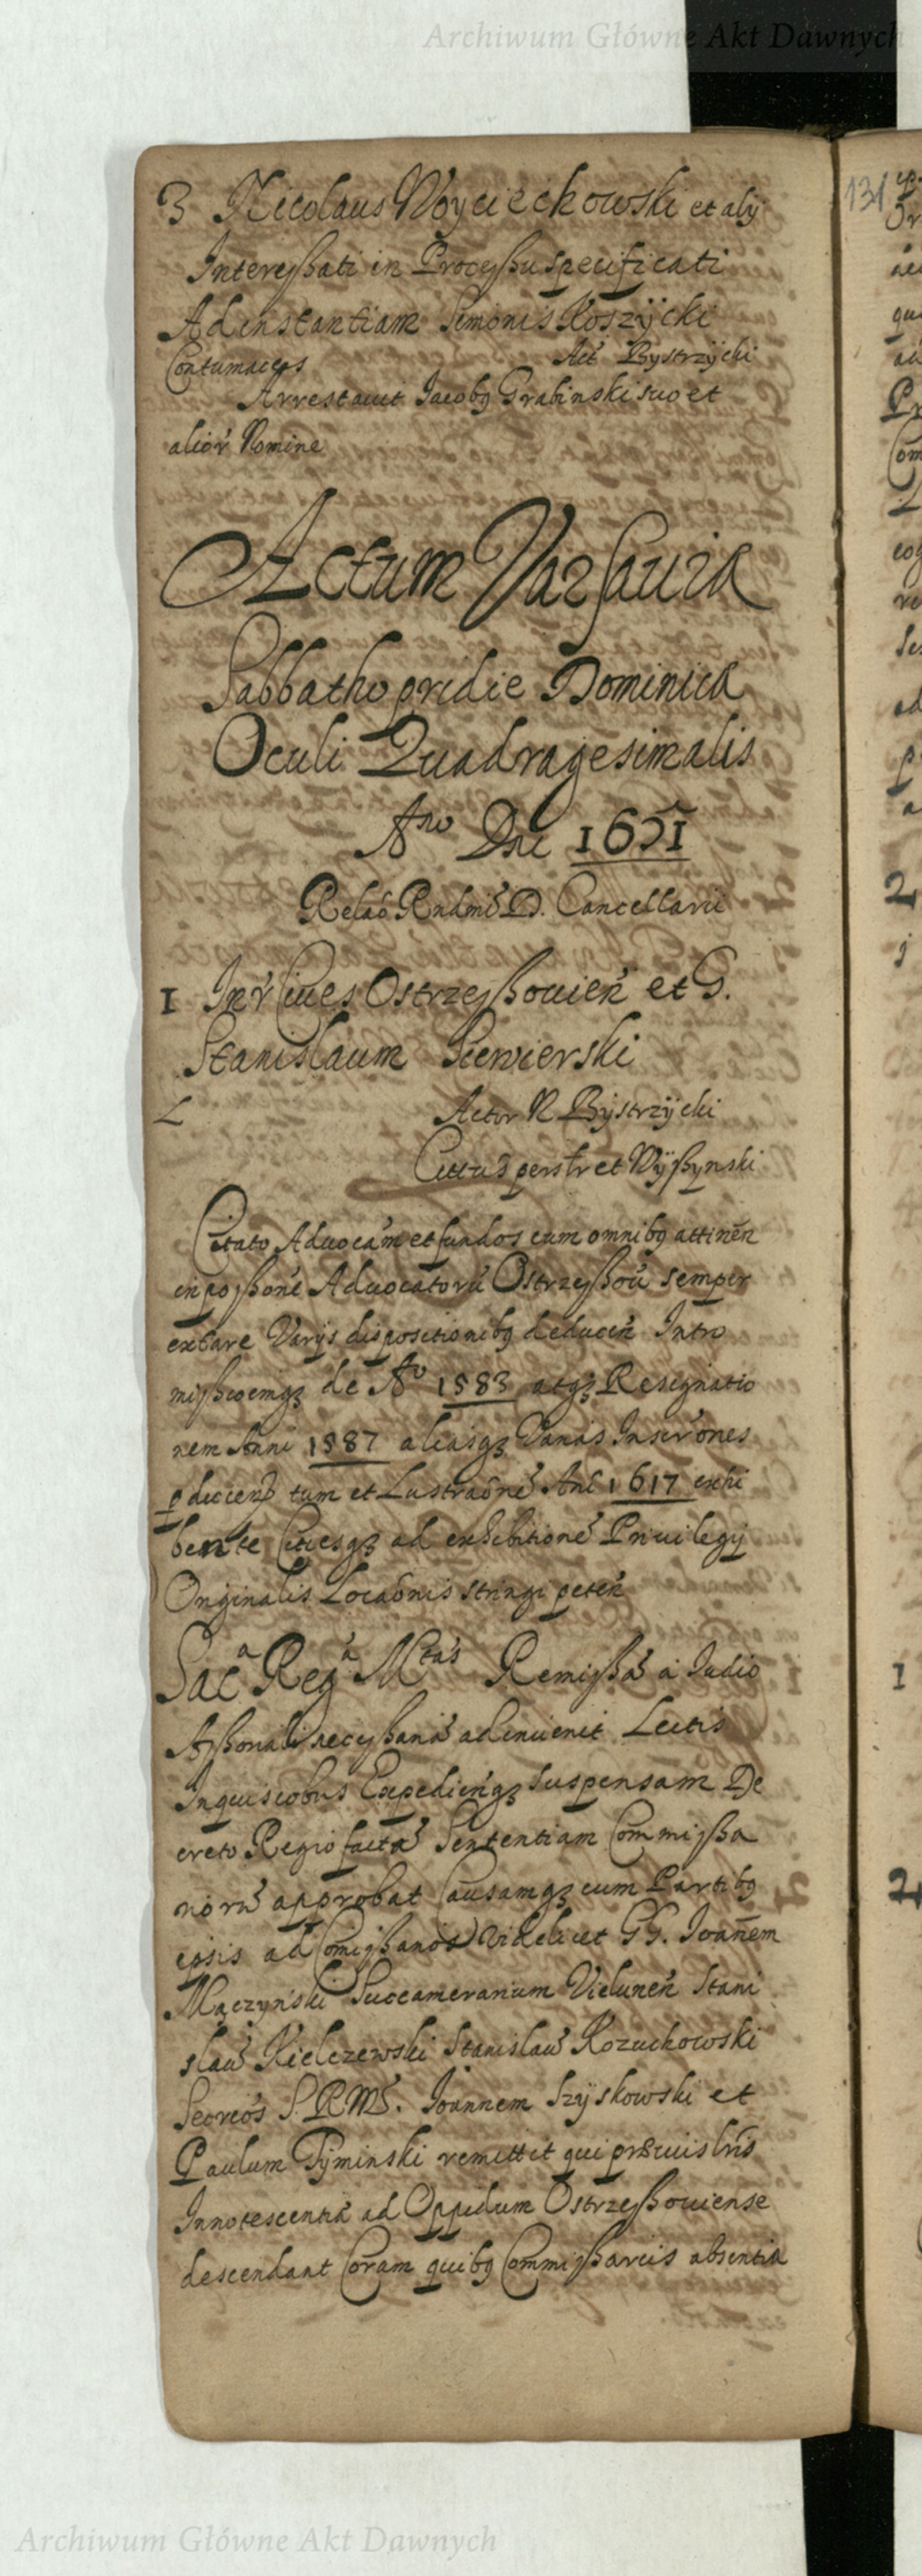 Archiwum Główne Akt Dawnych
3 Nicolaus Woyciechowski et alij
Interessati in Processu specificati
Ad instantiam Simonis Koszÿcki
Contumaces Act Bystrzÿcki
Arrestavit Jacobg Grabinski suo et
alior Nomine
Actum Varsauiæ
Sabbatho pridie Dominicæ
Oculi Quadragesimalis
Ano Dni 1651
Relaõ Rndmi D. Cancellarii
1 Intr Ciues Ostrzesssouien et G.
Stanislaum Siewierski
L Actor N Bÿstrzÿcki
Citatus perstr et Wÿszynski
Citato Aduocam et fundos cum omnibg attinen
in possone Aduocatoru Ostrzessou semper
extare Varijs dispositionibg deducen Intro
missioemqz de Ao 1583 atqz Resignatio
nem Anni 1587 aliasqz Varias Inscrones
pducen tum et Lustraone Ani 1617 exhi
bente Ciuesqz ad exhibitione Priuilegij
Originalis Locaonis stringi peten
Saca Rega Mtas Remissa a Iudio
Assonali necessaria adinuenit Lectis
Inquisiobus Expedienqz suspensam De
creto Regio facta Sententiam Commissa
rioru approbat Causamqz cum Partibg
ipsis ad Comissarios videlicet GG. Ioannem
Mączynski Succamerarium Vielunen Stani
slau Kielczewski Stanislau Kozuchowski
Secreos S. R. Ms. Ioannem Szÿskowski et
Paulum Tÿminski remittit qui præuis lris
Innotescentiæ ad Oppidum Ostrzessouiense
descendant Coram quibg Commissariis absentia
131
Archiwum Główne Akt Dawnych